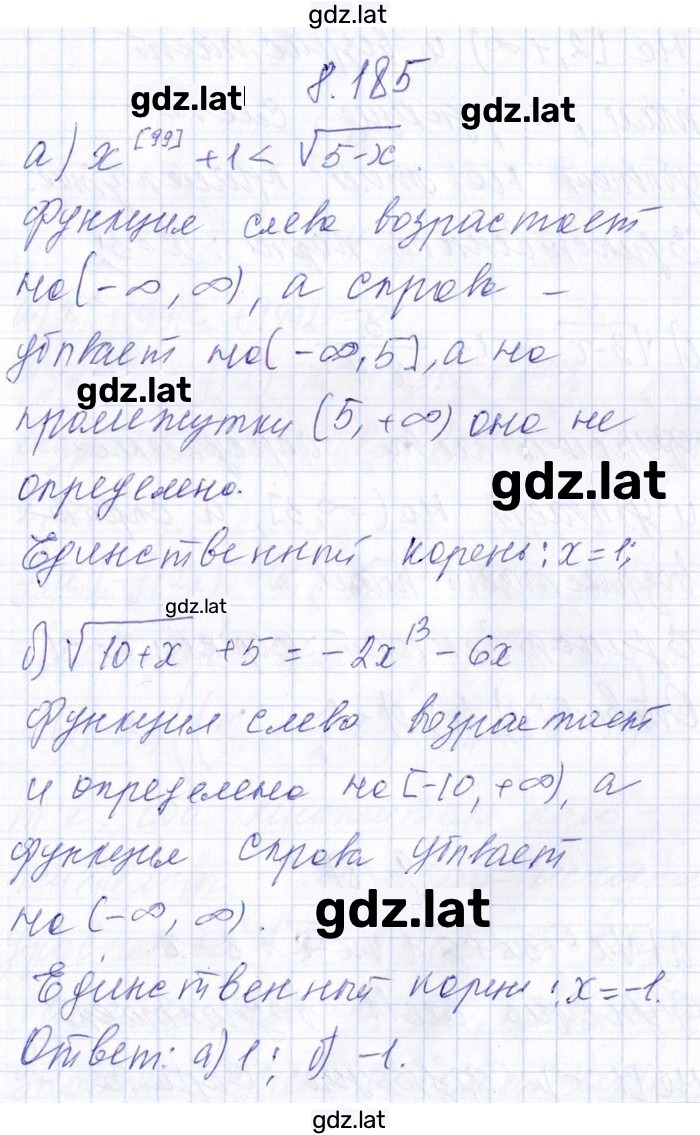 gdz.lat
8.185
gdz.lat
gdz.lat
а) x^[99] + 1 < √5-x
функция слева возрастает
на (-∞, ∞), а справа –
убывает на (-∞, 5], а на
gdz.lat
промежутки (5, +∞) она не
определена.
gdz.lat
Единственный корень: x = 1;
gdz.lat
б) √10+x + 5 = -2x^13 - 6x
функция слева возрастает
и определена на [-10, +∞), а
функция справа убывает
на (-∞, ∞).
gdz.lat
Единственный корень: x = -1.
Ответ: а) 1; б) -1.
gdz.lat